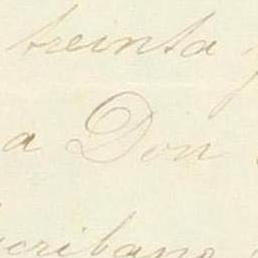 treinta
a Don
cribano